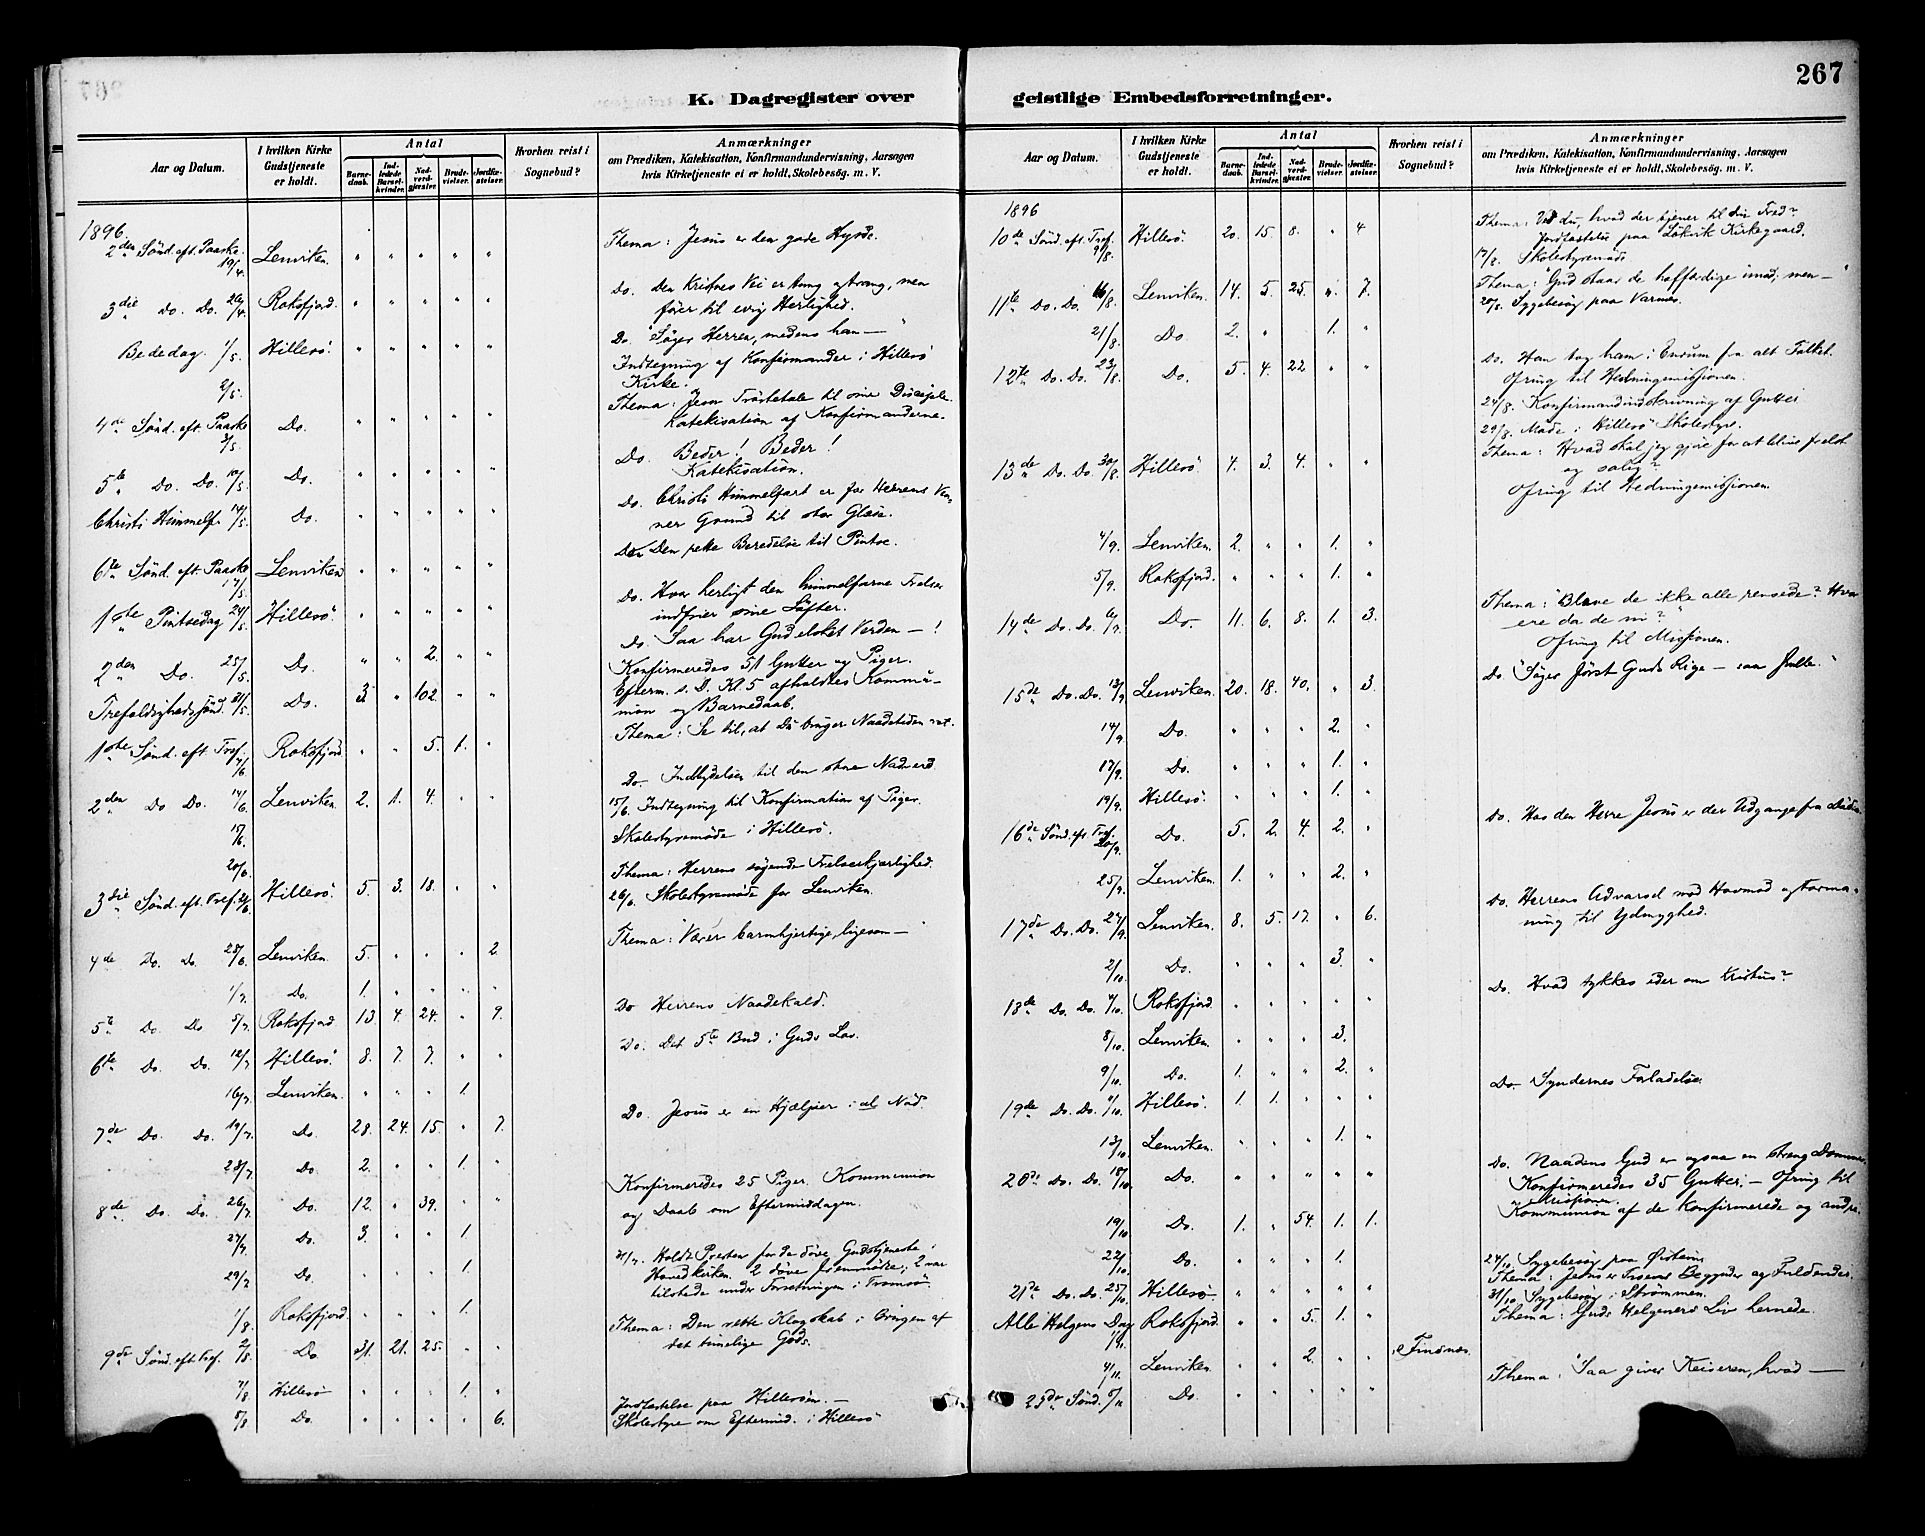 267
K. Dagregister over geistlige Embedsforretninger.
Aar og Datum. I hvilken Kirke Gudstjeneste er holdt. Antal Barnedaab. Indledede Barselkvinder. Nadverdgjester. Brudevielser. Jordfæstelser. Hvorhen reist i Sognebud? Anmærkninger om Prædiken, Katekisation, Konfirmandundervisning, Aarsagen hvis Kirketjeneste ei er holdt, Skolebesøg. m. V.
1896.
2den Sönd. eft. Paaske 19/4. Lenviken. " " " " " Thema: Jesus er den gode Hyrde.
3die Do. Do. 26/4. Roksfjord. " " " " " Do. Den Kristnes Vei er trang, men
fører til evig Herlighed.
Bededag. 1/5. Hillesö. " " " " " Do. "Söger Herren, medens han —"
2/5. Indtegning af Konfirmander i Hillesö
Kirke.
4de Sönd. eft. Paaske 3/5. Do. " " " " Thema: Jesu Tröstetale til sine Disciple.
Katekisation af Konfirmanderne.
5te Do. Do. 10/5. Do. " " " " " Do. Beder! Beder!
Katekisation.
Christi Himmelf. 14/5. Do. " " " " " Do. Christi Himmelfart er for Herrens Venner
Grund til stor Glæde.
6te Sönd. eft. Paaske 17/5. Lenviken " " " " " Do Den rette Beredelse til Pintse.
1ste Pintsedag 24/5. Hillesö. " " " " " Do. Hvor herligt den himmelfarne Frelser
indfrier sine Löfter.
2den Do. 25/5. Do. " " 2. " " Do. Saa har Gud elsket Verden —!
Trefoldighedssönd. 31/5. Do. 3 " 102. " " Konfirmeredes 51 Gutter og Piger.
Efterm. s. D. Kl. 5 afholdtes Kommunion
og Barnedaab.
1ste Sönd. eft. Tref. 7/6 Roksfjord. " " 5. 1. " Thema: Se til, at Du bruger Naadetiden ret.
2den Do Do. 14/6. Lenviken. 2. 1. 4. " " Do. Indbydelsen til den store Nadverd.
15/6. 15/6 Indtegning til Konfirmation af Piger.
20/6. Skolestyremöde i Hillesö.
3die Sönd. eft. Tref. 21/6. Hillesö. 5. 3. 18. " " Thema: Herrens sögende Frelserkjærlighed.
26/6. Skolestyremöde for Lenviken.
4de Do. Do. 28/6. Lenviken. 5. " " " 2. Thema: Værer barmhjertige, ligesom —
1/7. Do. 1. " " " "
5te Do. Do 5/7. Roksfjord. 13. 4. 24. " 9. Do Herrens Naadekald.
6te Do. Do. 12/7. Hillesö. 8. 7. 7. " " Do. Det 5te Bud i Guds Lov.
16/7. Lenviken. " " " 1.
7de Do. Do. 19/7. Do. 28. 24. 15. " 7. Do. Jesus er en Hjælper i al Nöd.
23/7. Do. 2. " " 1. "
8de Do. Do. 26/7. Do. 12. " 39. " " Konfirmeredes 25 Piger. Kommunion
og Daab om Eftermiddagen.
27/7. Do. 3. " " 1.
29/7 Do. " " " 1. 31/7. Holdt Presten for de döve Gudstjeneste i
Hovedkirken. 2 döve fremmödte; 2 var
tilstede under Forretningen i Tromsö.
1/8. Roksfjord. " " " 1.
9de Sönd. eft. Tref. 2/8. Do. 31. 21. 25. " " Thema: Den rette Klogskab i Brugen af
det timelige Gods.
7/8 Hillesö " " " 1. "
8/8 Do. " " " " 6. Jordfæstelse paa Hillesöen. —
Skolestyre om Eftermid. i Hillesö
Aar og Datum. I hvilken Kirke Gudstjeneste er holdt. Antal Barnedaab. Indledede Barselkvinder. Nadverdgjester. Brudevielser. Jordfæstelser. Hvorhen reist i Sognebud? Anmærkninger om Prædiken, Katekisation, Konfirmandundervisning, Aarsagen hvis Kirketjeneste ei er holdt, Skolebesøg. m. V.
1896
10de Sönd. eft. Tref. 9/8. Hillesö. 20. 15. 8. " 4 Thema: Vidste du, hvad der tjener til din Fred?
Jordfæstelse paa Lökvik Kirkegaard.
17/8. Skolestyremöde
11te Do. Do. 16/8. Lenviken. 14. 5. 25. " 7. Thema: "Gud staar de hoffærdige imod; men —"
20/8. Sygebesög paa Varnæs.
21/8. Do 2. " 1. "
12te Do. Do. 23/8. Do. 5. 4. 22 " " Do. Han tog ham i Enrum fra alt Folket.
Ofring til Hedningemissionen.
24/8. Konfirmandindskrivning af Gutter
29/8. Möde i Hillesö Skolestyre.
13de Do. Do. 30/8. Hillesö. 4. 3. 4. " " Thema: Hvad skal jeg gjöre for at blive frelst
og salig?
Ofring til Hedningemissionen.
4/9. Lenviken. 2. " " 1. "
5/9. Roksfjord. " " " 1. "
14de Do. Do. 6/9. Do. 11. 6. 8. 1. 3. Thema: "Bleve de ikke alle rensede? Hvor
ere da de ni?"
Ofring til Missionen.
15de Do. Do. 13/9. Lenviken. 20. 18. 40. " 3. Do "Söger först Guds Rige — saa skulle."
14/9. Do. " " " 2. "
17/9. Do. " " " 1. "
19/9. Hillesö. " " " 1. "
16de Sönd. eft. Tref. 20/9. Do. 5. 2. 4. 2. " Do. Hos den Herre Jesus er der Udgange fra Döden
25/9. Lenviken. 1. " " 2. "
17de Do. Do. 27/9. Lenviken. 8. 5. 17. " 6. Do. Herrens Advarsel mod Hovmod og Formaning
til Ydmyghed.
2/10. Do. " " " 3. "
18de Do. Do. 4/10. Roksfjord. " " " " " Do. Hvad tykkes eder om Kristus?
8/10. Lenviken. " " " 3.
9/10. Do. 1. " " 2. "
19de Do. Do. 11/10. Hillesö. 1. 1. " " " Do. Syndernes Forladelse
13/10 Lenviken. " " " 1. "
20de Do. Do. 18/10. Do. " " " " Do. Naadens Gud er ogsaa en streng Dommer.
Konfirmeredes 35 Gutter. — Ofring til
Missionen.
19/10 Do. 1. " 54. 1. 1. Kommunion af de Konfirmerede og andre.
22/10 Do. " " " 1. 24/10 Sygebesög paa
21de Do. Do. 25/10. Hillesö. " " " " " Thema: Jesus er Troens Begynder og Fuldender.
31/10 Sygebesög i Strömmen.
Alle Helgens Dag 1/11. Roksfjord. " " 5. 1. " Thema: Guds Helgeners Liv hernede.
4/11. Lenviken. " " 2. " " Finsnæs.
23de Sönd. 8/11 Do. " " " " " Thema: "Saa giver Keiseren, hvad —"